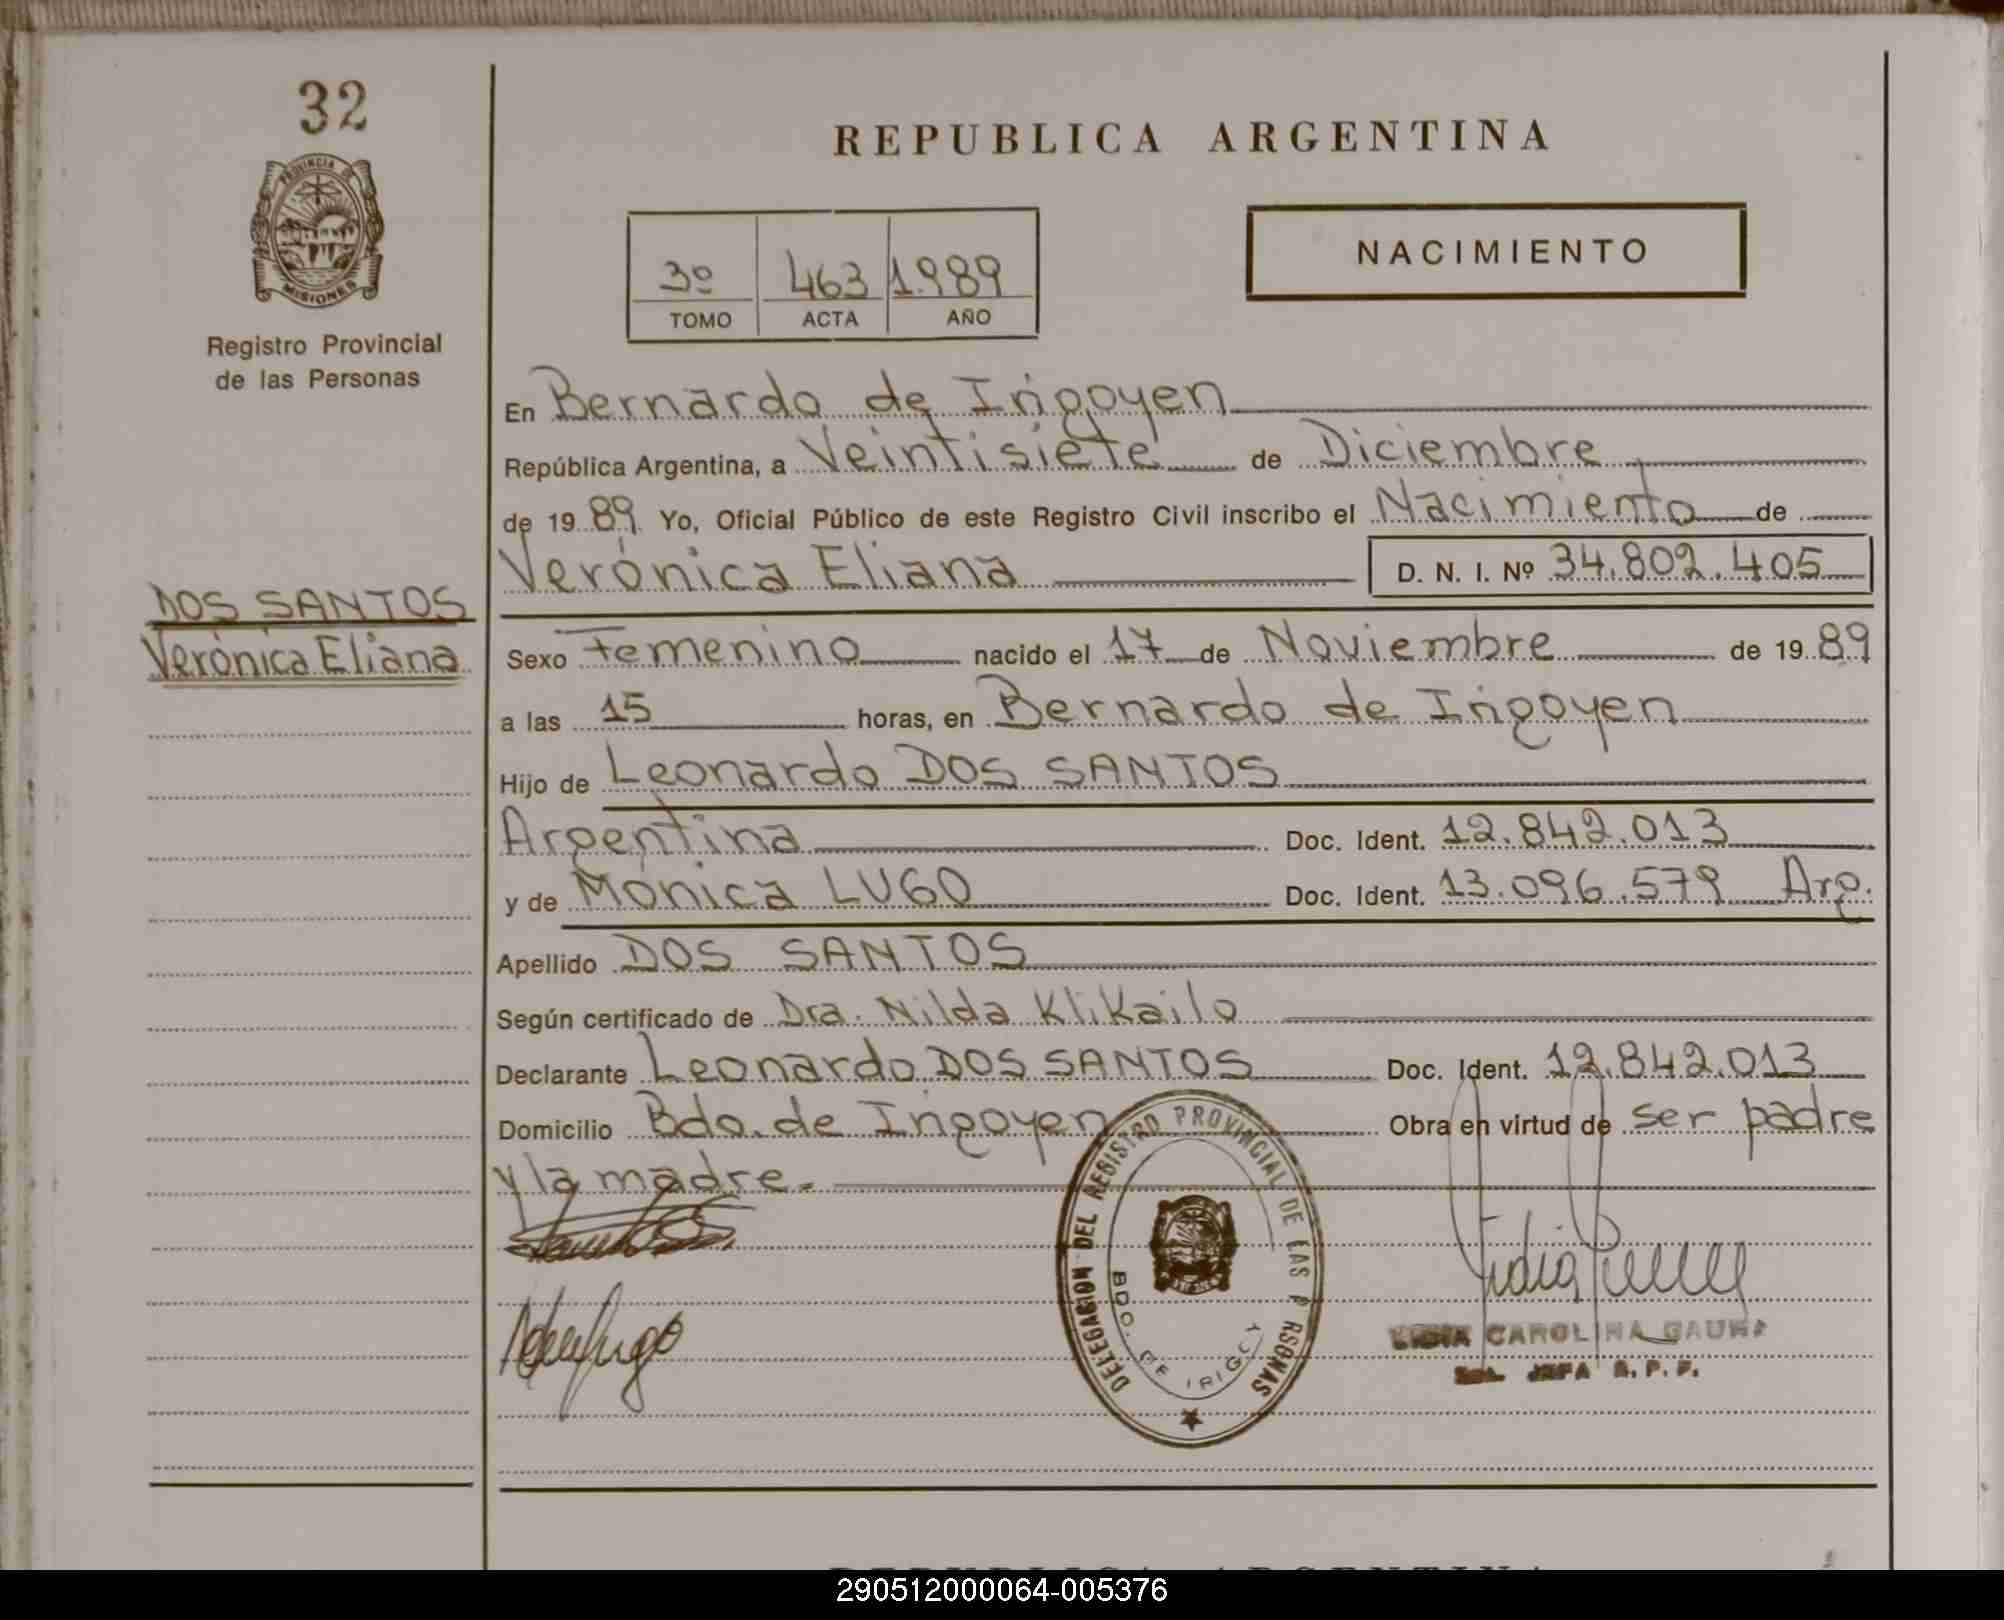 32
PROVINCIA DE
MISIONES
Registro Provincial
de las Personas
DOS SANTOS
Verónica Eliana
REPUBLICA ARGENTINA
3º 463 1.989
TOMO ACTA AÑO
NACIMIENTO
En Bernardo de Irigoyen
República Argentina, a Veintisiete de Diciembre
de 19 89 Yo, Oficial Público de este Registro Civil inscribo el Nacimiento de
Verónica Eliana D. N. I. Nº 34.802.405
Sexo Femenino nacido el 17 de Noviembre de 19 89
a las 15 horas, en Bernardo de Irigoyen
Hijo de Leonardo DOS SANTOS
Argentina Doc. Ident. 12.842.013
y de Mónica LUGO Doc. Ident. 13.096.579 Arg.
Apellido DOS SANTOS
Según certificado de Dra. Nilda Klikailo
Declarante Leonardo DOS SANTOS Doc. Ident. 12.842.013
Domicilio Bdo. de Irigoyen Obra en virtud de ser padre
y la madre.
DELEGACION DEL REGISTRO PROVINCIAL DE LAS P RSONAS
BDO. DE IRIGOY
LIDIA CAROLINA GAUNA
JEFA R.P.P.
REPUBLICA ARGENTINA
290512000064-005376